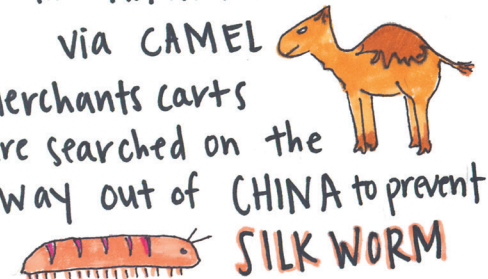 via CAMEL
carts
searched on the
way out of CHINA to prevent
SILK WORM